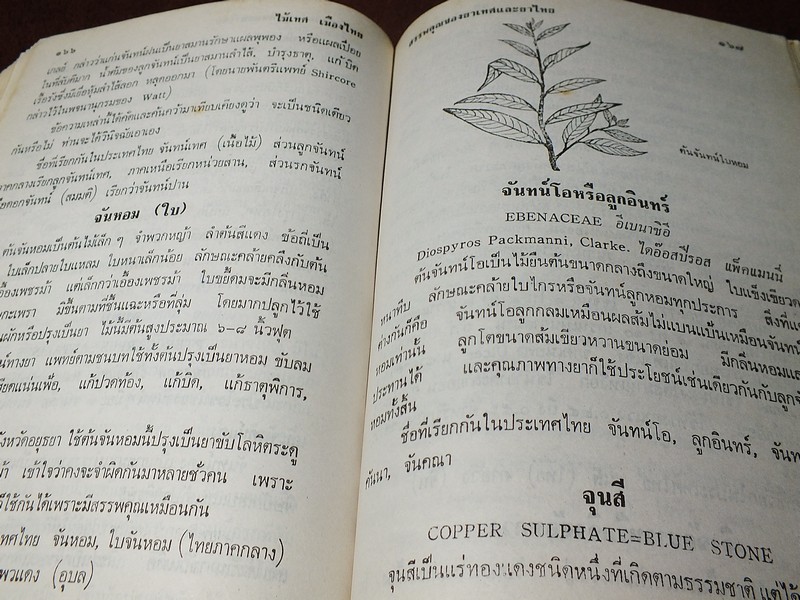 ๑๖๖
ไม้เทศ เมืองไทย
เกลลี่ กล่าวว่าแก่นจันทน์ฝนเป็นยาสมานรักษาแผลพุพอง หรือแผลเปื่อย
ในที่ลับดีมาก น้ำต้มของลูกจันทน์เป็นยาสมานลำไส้, บำรุงธาตุ, แก้บิด
เรื้อรังซึ่งมีเยื่อหุ้มลำไส้ลอก หลุดออกมา (โดยนายพันตรีแพทย์ Shircore
กล่าวไว้ในพจนานุกรมของ Watt)
ข้อความเหล่านี้ได้คัดและค้นคว้ามาเทียบเคียงดูว่า จะเป็นชนิดเดียว
กันหรือไม่ ท่านจะได้วินิจฉัยเอาเอง
ชื่อที่เรียกกันในประเทศไทย จันทน์เทศ (เนื้อไม้) ส่วนลูกจันทน์
ภาคกลางเรียกลูกจันทน์เทศ, ภาคเหนือเรียกหน่วยสาน, ส่วนรกจันทน์
ดอกจันทน์ (สมมตี) เรียกว่าจันทน์ปาน
จันหอม (ใบ)
ต้นจันหอมเป็นต้นไม้เล็ก ๆ จำพวกหญ้า ลำต้นสีแดง ข้อถี่เป็น
ใบเล็กปลายใบแหลม ใบหนาเล็กน้อย ลักษณะคล้ายคลึงกับต้น
เอื้องเพชรม้า แต่เล็กกว่าเอื้องเพชรม้า ใบขยี้ดมจะมีกลิ่นหอม
กะเพรา มีขึ้นตามที่ชื้นแฉะหรือที่ลุ่ม โดยมากปลูกไว้ใช้
ผักหรือปรุงเป็นยา ไม้นี้มีต้นสูงประมาณ ๖–๘ นิ้วฟุต
ทางยา แพทย์ตามชนบทใช้ทั้งต้นปรุงเป็นยาหอม ขับลม
แน่นเฟ้อ, แก้ปวดท้อง, แก้บิด, แก้ธาตุพิการ,
จังหวัดอยุธยา ใช้ต้นจันหอมนี้ปรุงเป็นยาขับโลหิตระดู
เข้าใจว่าคงจะจำผิดกันมาหลายชั่วคน เพราะ
ใช้กันได้เพราะมีสรรพคุณเหมือนกัน
จันหอม, ใบจันหอม (ไทยภาคกลาง)
(อุบล)
สรรพคุณของยาเทศและยาไทย
๑๖๗
ต้นจันทน์ใบหอม
จันทน์โอหรือลูกอินทร์
EBENACEAE อีเบนาซีอี
Diospyros Packmanni, Clarke. ไดอ๊อสปี้รอส แพ็คแมนนี่
ต้นจันทน์โอเป็นไม้ยืนต้นขนาดกลางถึงขนาดใหญ่ ใบแข็งเขียว
หนาทึบ ลักษณะคล้ายใบไกรหรือจันทน์ลูกหอมทุกประการ สิ่งที่
ต่างกันก็คือ จันทน์โอลูกกลมเหมือนผลส้มไม่แบนแป้นเหมือนจันทน์
หอมเท่านั้น ลูกโตขนาดส้มเขียวหวานขนาดย่อม มีกลิ่นหอม
ประทานได้ และคุณภาพทางยาก็ใช้ประโยชน์เช่นเดียวกันกับลูก
หอมทั้งสิ้น
ชื่อที่เรียกกันในประเทศไทย จันทน์โอ, ลูกอินทร์,
คันนา, จันคณา
จุนสี
COPPER SULPHATE=BLUE STONE
จุนสีเป็นแร่ทองแดงชนิดหนึ่งที่เกิดตามธรรมชาติ แต่ได้